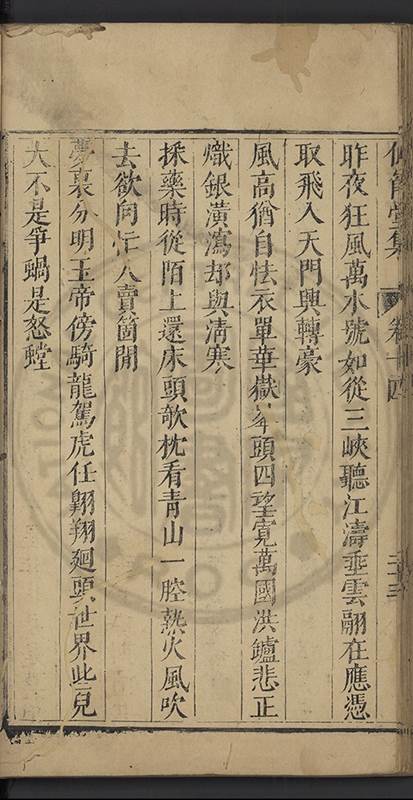 仰節堂集 卷十四
昨夜狂風萬木號如從三峽聽江濤垂雲翮在應憑
取飛入天門興轉豪
風高猶自怯衣單華嶽峯頭四望寛萬國洪鑪悲正
熾銀潢瀉却與清寒
採藥時從陌上還床頭欹枕看青山一腔熱火風吹
去欲向忙人賣箇閒
夢裏分明玉帝傍騎龍駕虎任翺翔廻頭世界些兒
大不是爭蝸是怒螳